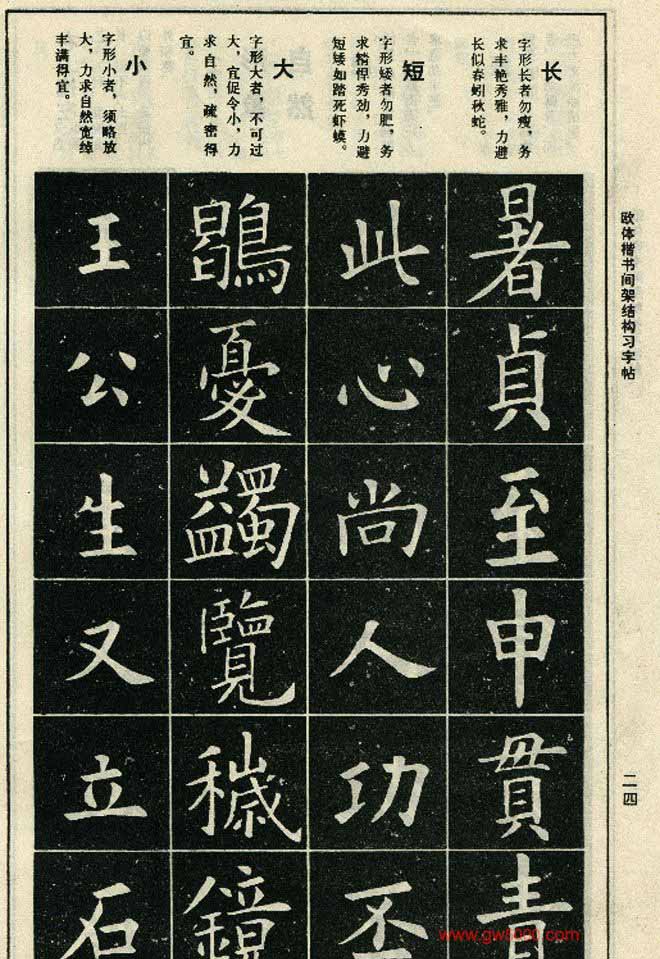 长
字形长者勿瘦，务
求丰艳秀雅，力避
长似春蚓秋蛇。
短
字形矮者勿肥，务
求精悍秀劲，力避
短矮如踏死虾蟆。
大
字形大者，不可过
大，宜促令小，力
求自然，疏密得
宜。
小
字形小者，须略放
大，力求自然宽绰
丰满得宜。
暑貞至申貫青
此心尚人功丕
鵾憂蠲覽穢鏡
王公生又立石
欧体楷书间架结构习字帖
二四
www.gw8000.com